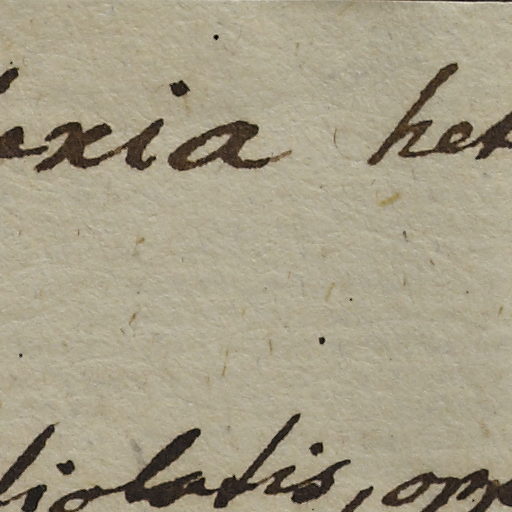 exia het
tiolatis, opp